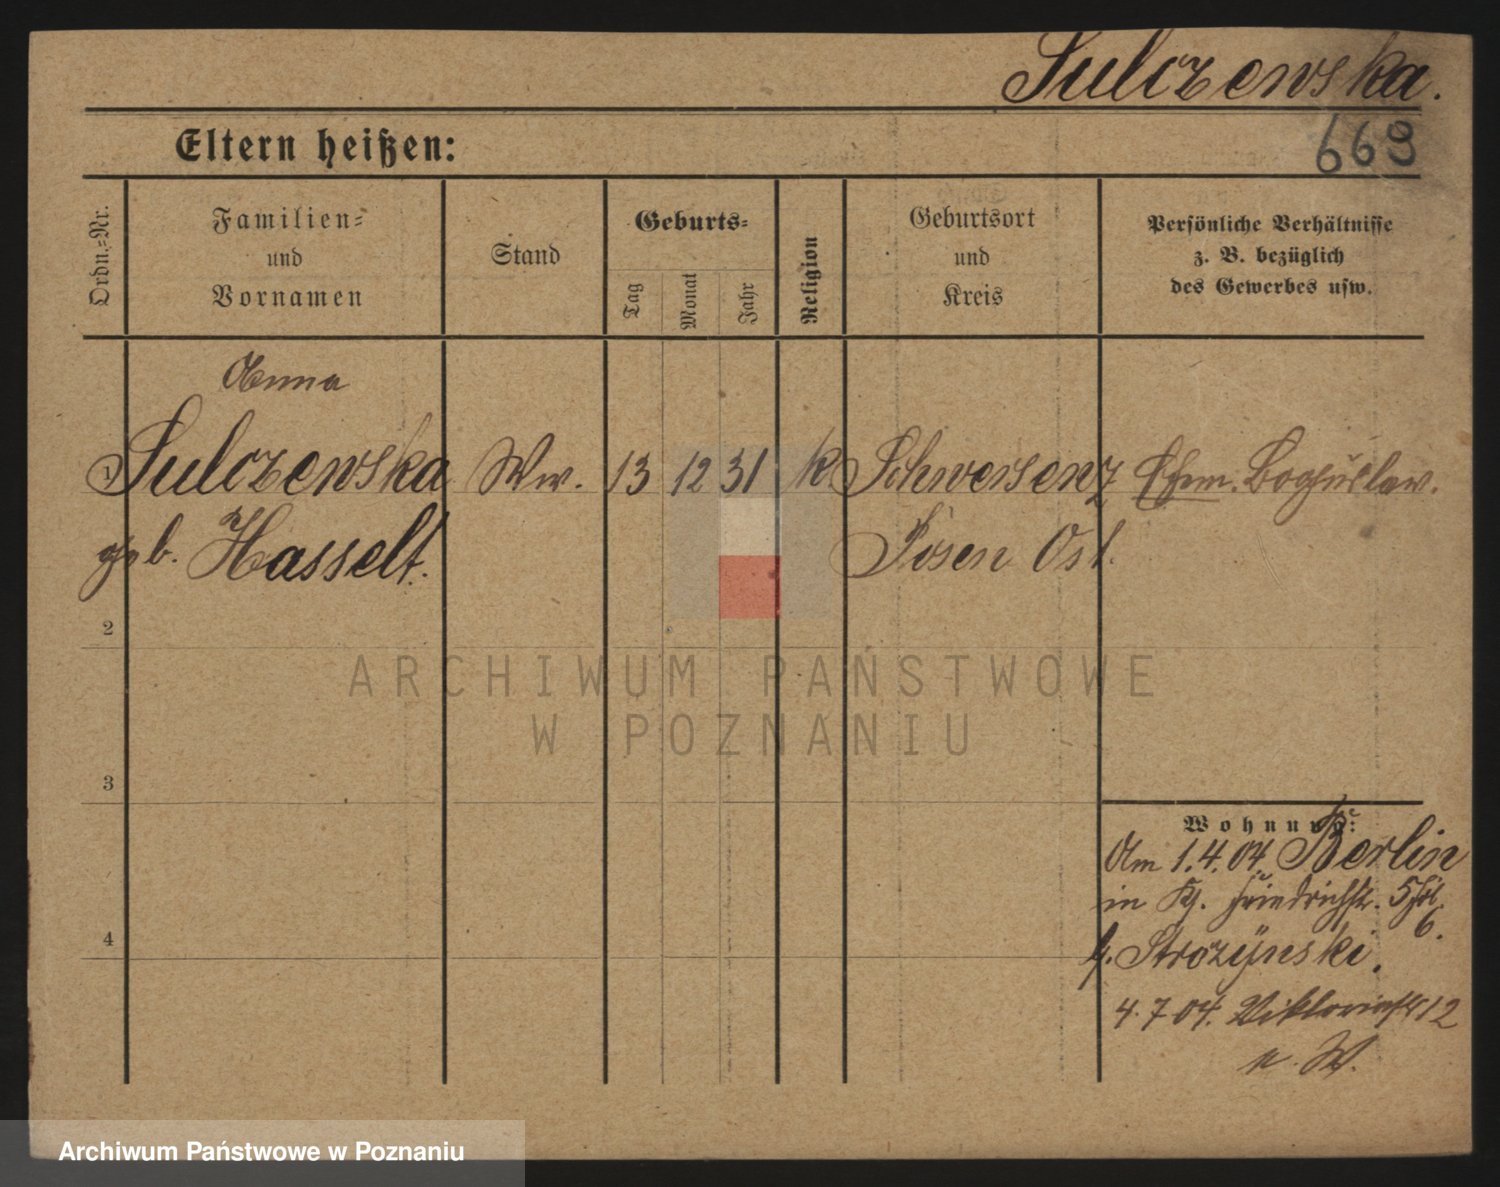 Sulczewska.
669
Eltern heißen:
Ordn.-Nr.
Familien-
und
Vornamen
Stand
Geburts-
Tag
Monat
Jahr
Religion
Geburtsort
und
Kreis
Persönliche Verhältnisse
z. B. bezüglich
des Gewerbes usw.
Anna
1 Sulczewska Ww. 13 12 31 k Schwersenz Ehem. Boguslaw.
geb. Hasselt. Posen Ost.
2
3
4
Wohnung:
Am 1.4.04. Berlin
in Friedrichstr. 5
6.
b. Strozynski.
4.7 04. Viktoriastr 12
n. W.
ARCHIWUM PAŃSTWOWE
W POZNANIU
Archiwum Państwowe w Poznaniu